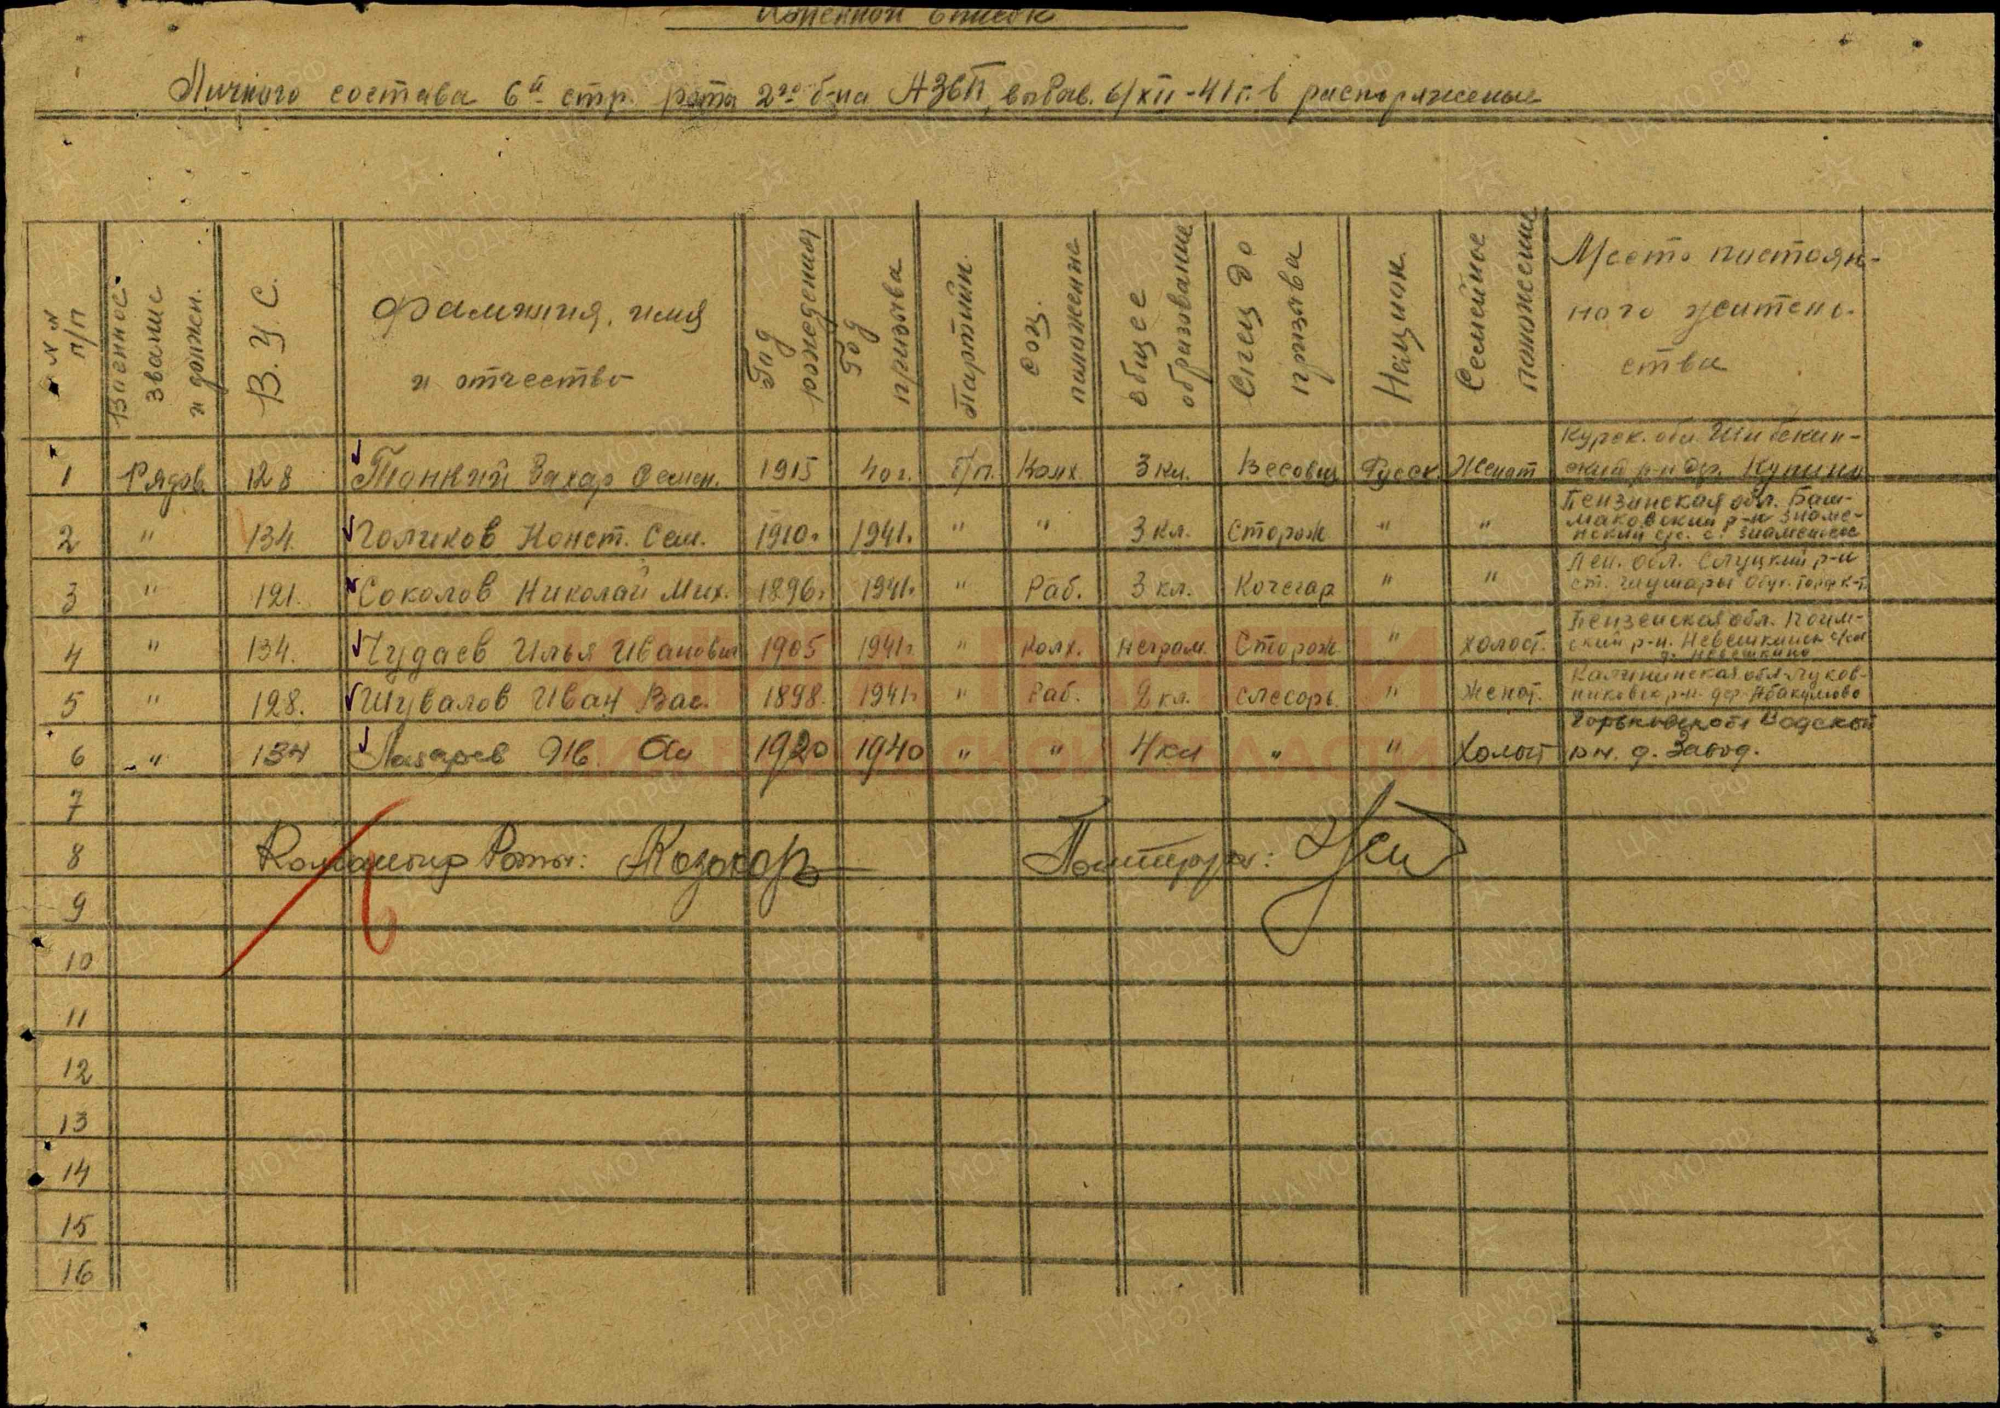 Именной список
Личного состава 6й стр. роты 2го б-на АЗСП, выбыв. 6/XII-41г. в распоряжение
№№ п/п
Военное звание и должен.
В.У.С.
Фамилия, имя и отчество
Год рождения
Год призыва
Партийн.
Соц. положение
Общее образование
Спец до призыва
Национ.
Семейное положение
Место постоян-
ного житель-
ства
1 Рядов. 128 Тонкий Захар Семен. 1915 40г. б/п. Колх. 3 кл. Весовщ Русск. Женат Курск. обл. Шибекин-
ский р-н дер. Купино
2 " 134. Голиков Конст. Сем. 1910. 1941. " " 3 кл. Сторож " " Пензинская обл. Баш-
маковский р-н Знаме-
нский с/с. с. Знаменское
3 " 121. Соколов Николай Мих. 1896. 1941. " Раб. 3 кл. Кочегар " " Лен. обл. Слуцкий р-н
ст. Шушары
4 " 134. Чудаев Илья Иванович 1905 1941г " Колх. неграм. Сторож " холост. Пензенская обл. Поим-
ский р-н. Невешкинск с/сов
д. Невешкино
5 " 128. Шувалов Иван Вас. 1898. 1941г " Раб. 2 кл. слесарь " женат. Калининская обл. Луков-
никовск р-н дер. Абакумово
6 " 134 Лазарев Ив. 1920 1940 " " 4 кл " " Холост Горьковск обл Водский
рн. д. Завод.
7
8 Командир Роты: Политрук:
9
10
11
12
13
14
15
16
КНИГА ПАМЯТИ